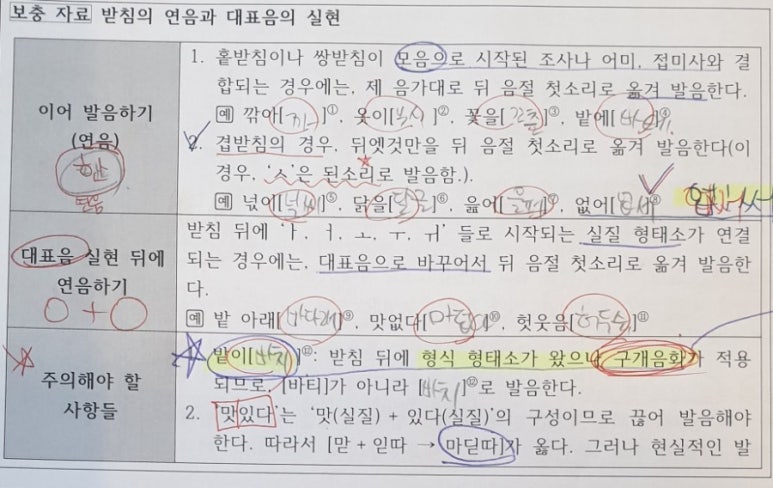 보충 자료 받침의 연음과 대표음의 실현
이어 발음하기
(연음)
1. 홑받침이나 쌍받침이 모음으로 시작된 조사나 어미, 접미사와 결
합되는 경우에는, 제 음가대로 뒤 음절 첫소리로 옮겨 발음한다.
예 깎아[ ]①, 옷이[ ]②, 꽃을[꼬츨]③, 밭에[ ]④
2. 겹받침의 경우, 뒤엣것만을 뒤 음절 첫소리로 옮겨 발음한다(이
경우, ‘ㅅ’은 된소리로 발음함.).
예 넋이[넉씨]⑤, 닭을[달글]⑥, 읊어[을퍼]⑦, 없어[업써]⑧
대표음 실현 뒤에
연음하기
O + O
받침 뒤에 ‘ㅏ, ㅓ, ㅗ, ㅜ, ㅟ’ 들로 시작되는 실질 형태소가 연결
되는 경우에는, 대표음으로 바꾸어서 뒤 음절 첫소리로 옮겨 발음한
다.
예 밭 아래[바다래]⑨, 맛없다[마덥다]⑩, 헛웃음[허두슴]⑪
주의해야 할
사항들
1. 밭이[바치]⑫: 받침 뒤에 형식 형태소가 왔으나 구개음화가 적용
되므로, [바티]가 아니라 [바치]⑫로 발음한다.
2. ‘맛있다’는 ‘맛(실질) + 있다(실질)’의 구성이므로 끊어 발음해야
한다. 따라서 [맏 + 읻따 → 마딛따]가 옳다. 그러나 현실적인 발